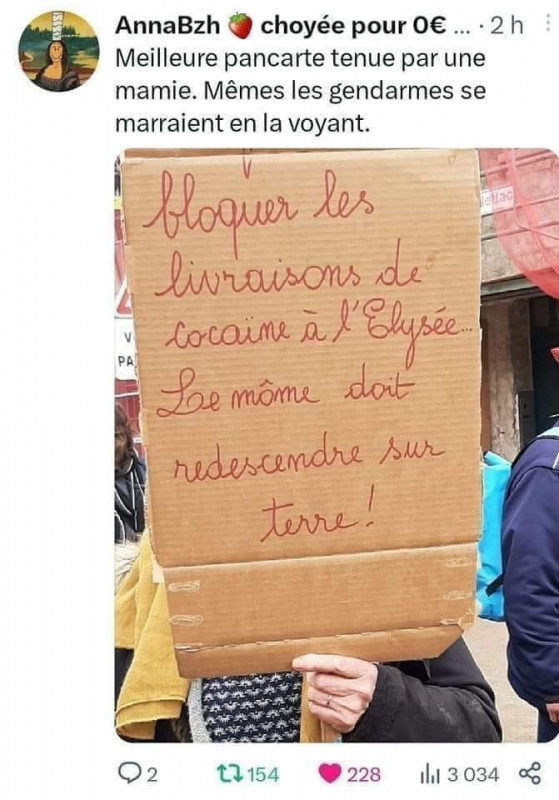 AnnaBzh 🍓 choyée pour 0€ ... · 2 h
Meilleure pancarte tenue par une
mamie. Mêmes les gendarmes se
marraient en la voyant.
bloquer les
livraisons de
cocaïne à l'Elysée...
Le môme doit
redescendre sur
terre !
V
PA
2
154
228
3 034